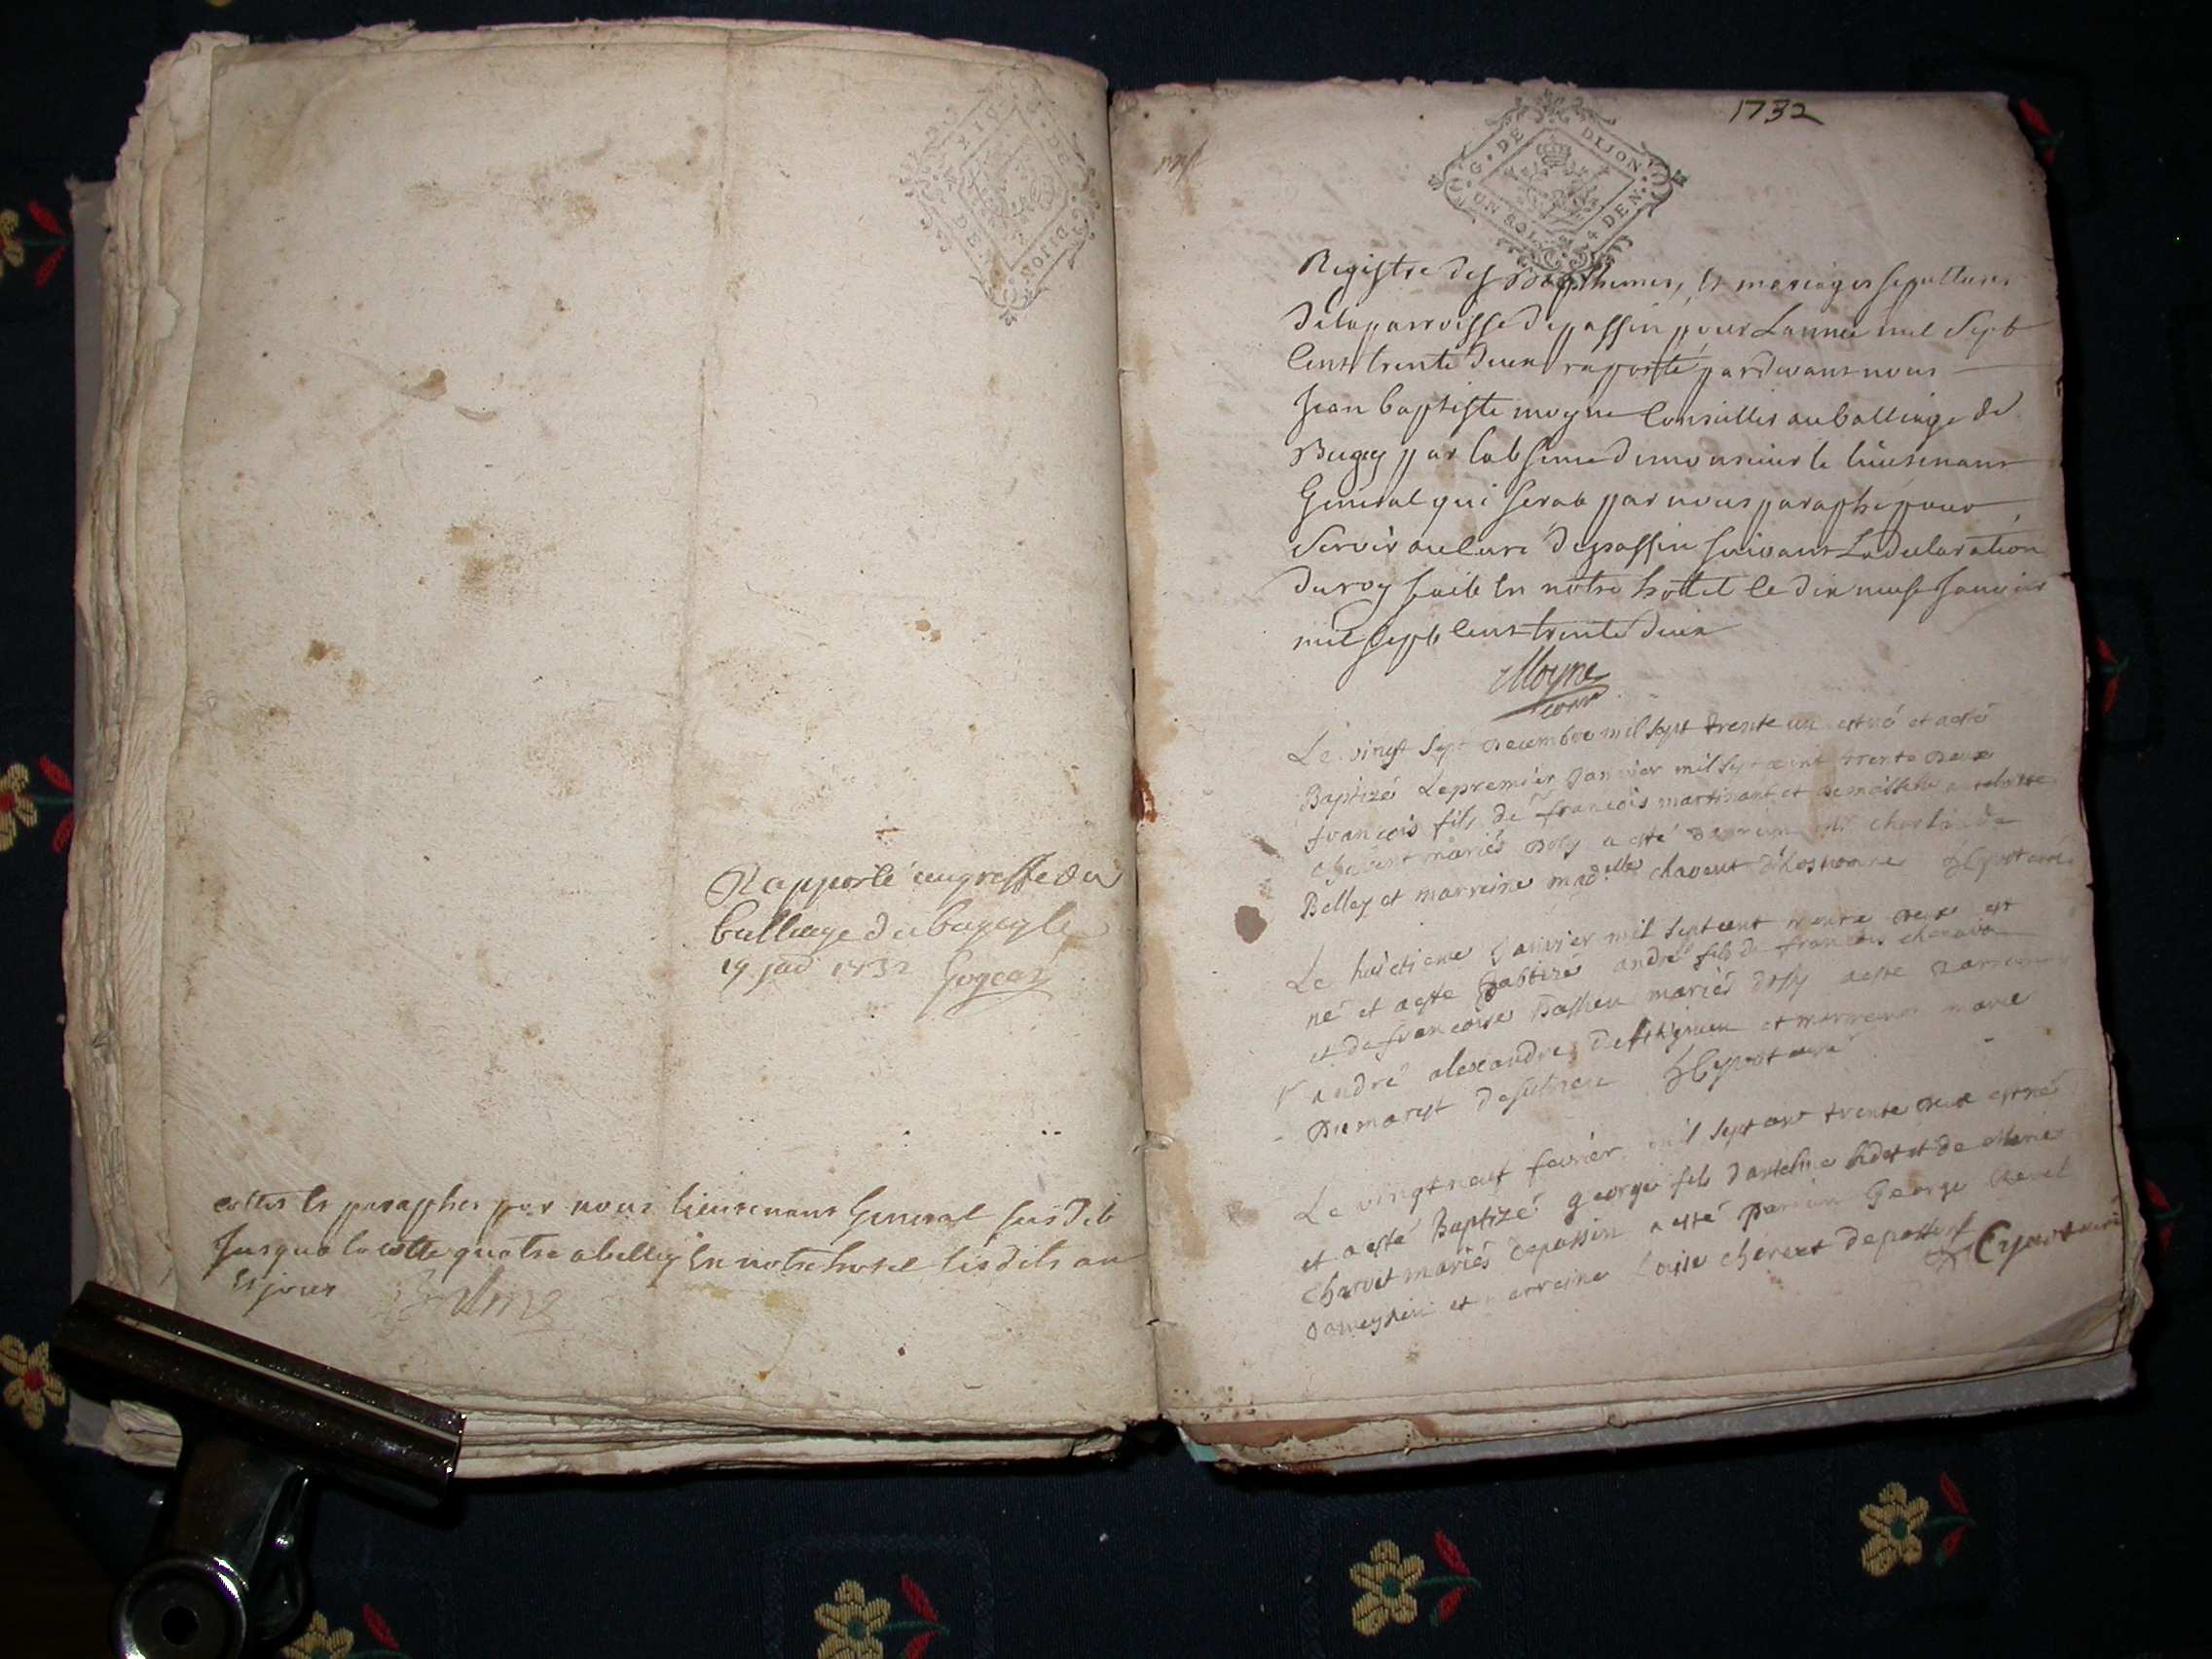 G. DE DIJON
UN SOL 4 DEN.
Rapporté au greffe du
balliage du bugey le
19 jad 1732
cottés et paraphes par nous lieutenant General susdit
Jusqua la cotte quatre a belley En notre hotel lesdits an
Et jour
1732
G. DE DIJON
UN SOL 4 DEN.
Registre des Bapthemes, et mariages sepultures
de la parroisse de passin pour Lannée mil Sept
Cent trente deux raporté pardevant nous
Jean baptiste moyne Conseiller au balliage de
Bugey par labsence de monsieur le lieutenant
General qui serat par nous paraphé pour
Servir au Curé de passin suivant La declaration
du roy fait En notre hottel le dix neuf Janvier
mil sept Cent trente deux
Moyne
Le vingt sept decembre mil sept trente un est né et a esté
Baptizé Le premier Janvier mil sept cent trente deux
francois fils de Sr francois martinant et demoiselle
chavent mariés a esté
Belley et marreine madelle chavent
Le huictieme Janvier mil sept cent trente deux est
né et a esté Babtizé andré fils de francois
et de francoise mariés a esté parrain
andré alexandre et marreine marie
Dumarest
Le vingt neuf fevrier mil sept cent trente deux est né
et a esté Baptizé george fils d'antelme et de Marie
Charvet mariés de passin a esté parrain George
et marreine Loüise